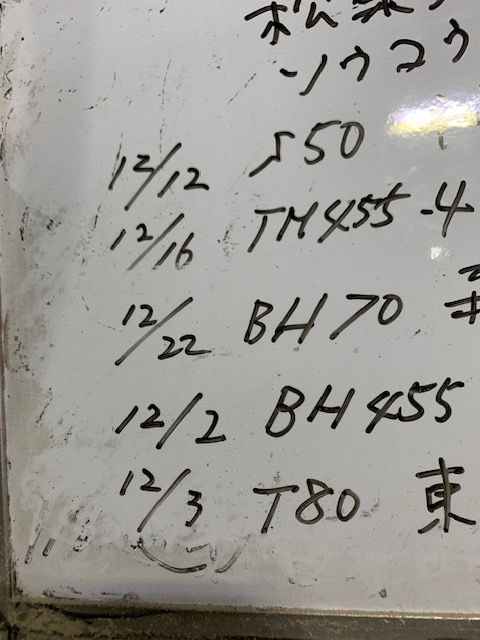 ソウコウ
12/12 S50
12/16 TM455-4
12/22 BH70
12/2 BH455
12/3 T80 東